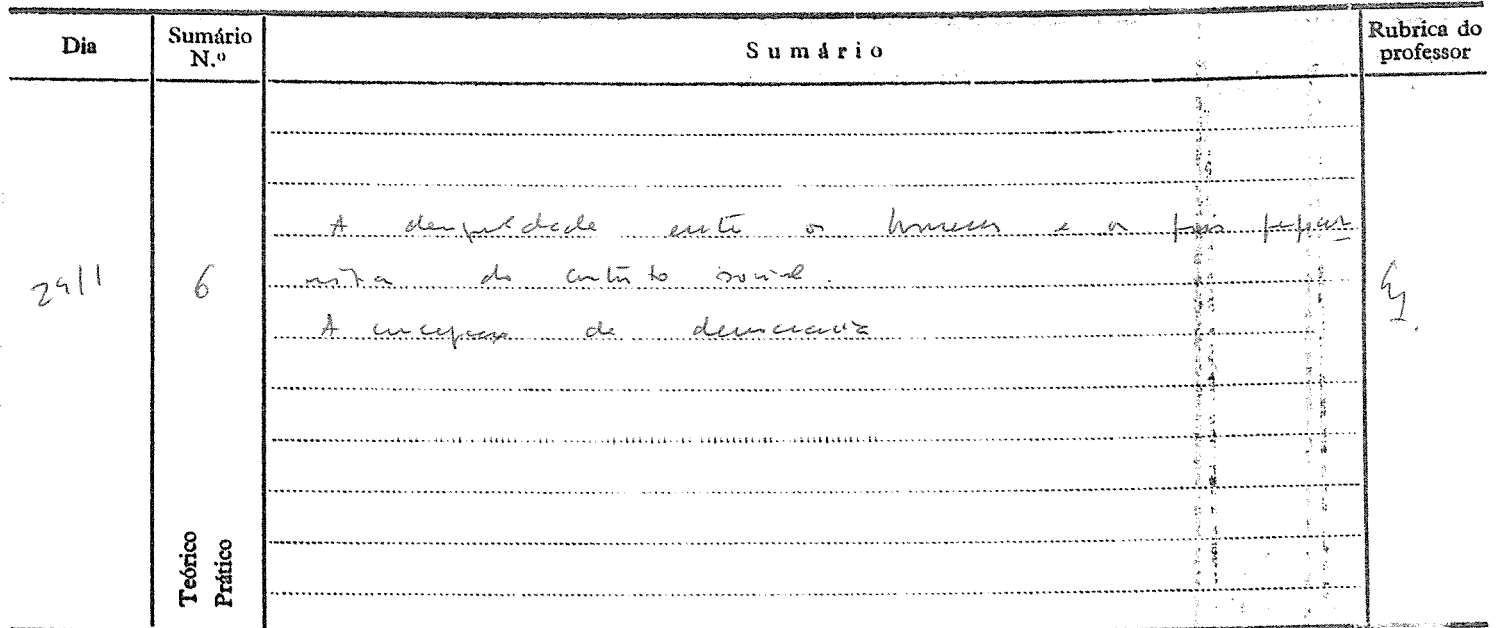 Dia
Sumário N.º
Sumário
Rubrica do professor
29/1
6
A desigualdade entre os homens e os
do contrato social.
A concepção de democracia
Teórico
Prático